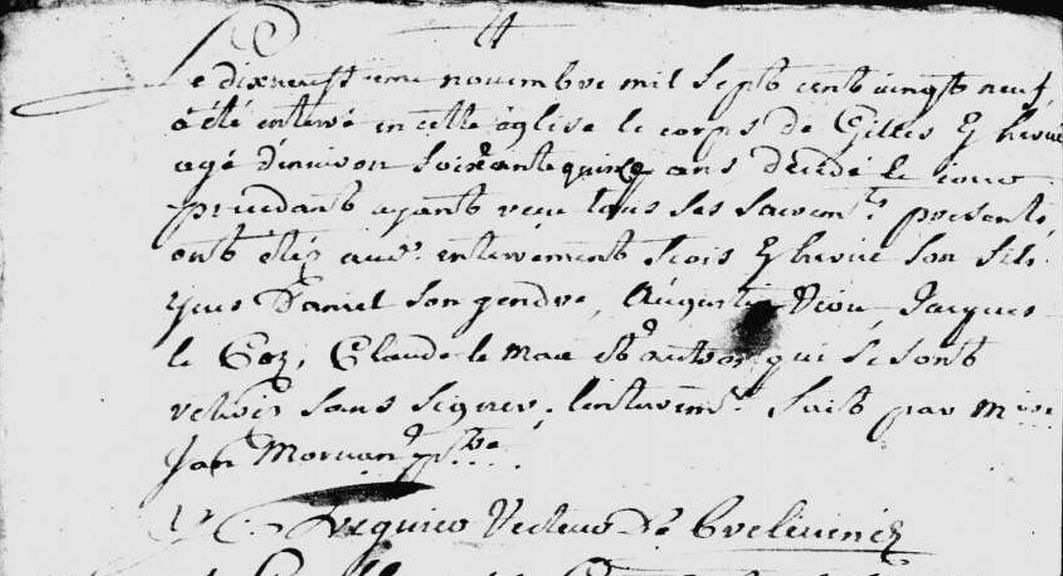 Le dixneufieme novembre mil sept cent vingt neuf
a été enterré en cette église le corps de Gilles
agé d'environ soixante quinze ans décédé le jour
precedant ayant receu tous ses sacremts. presents
ont étés audt. enterrement son fils
yves Daniel son gendre, Augustin Jacques
le Goz, Claude le Mae et autres qui se sont
retirés sans signer, l'enterremt. fait par mire
Jan Morvan ptre
Recteur de Brelevenez